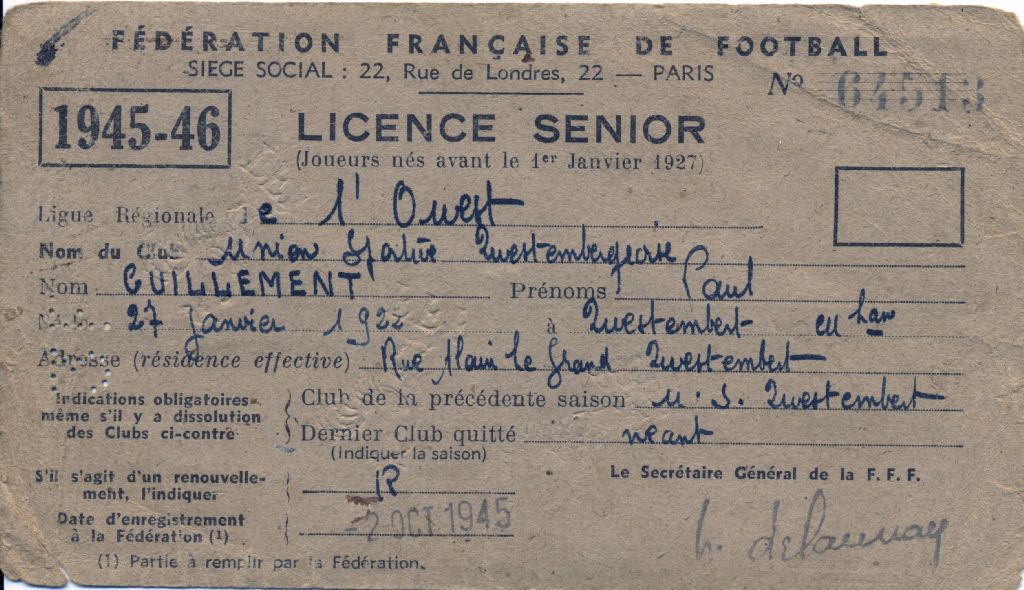 FÉDÉRATION FRANÇAISE DE FOOTBALL
SIEGE SOCIAL : 22, Rue de Londres, 22 — PARIS
Nº 64513
1945-46
LICENCE SENIOR
(Joueurs nés avant le 1er Janvier 1927)
Ligue Régionale de l'Ouest
Nom du Club Union Sportive Questembergeoise
Nom GUILLEMENT Prénoms Paul
27 Janvier 1922 à Questembert
Adresse (résidence effective) Rue Alain Le Grand Questembert
Indications obligatoires même s'il y a dissolution des Clubs ci-contre
Club de la précédente saison U. S. Questembert
Dernier Club quitté néant
(Indiquer la saison)
S'il s'agit d'un renouvellement, l'indiquer R
Date d'enregistrement à la Fédération (1) -2 OCT 1945
(1) Partie à remplir par la Fédération.
Le Secrétaire Général de la F. F. F.
h. delaunay